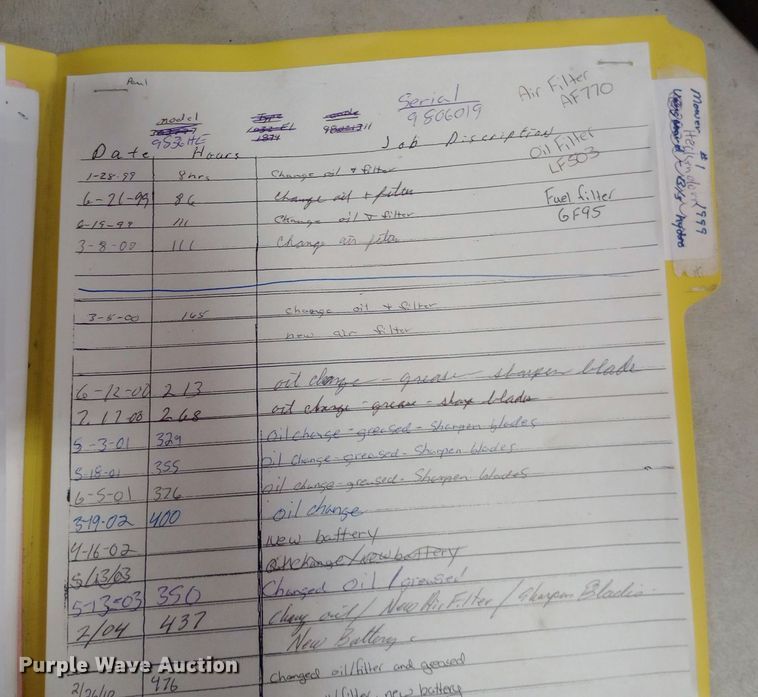 Serial
9806019
Air Filter
AF770
model
9536HE
Date Hours Job Discription
Oil Filter
LF503
Fuel filter
GF95
Mower #1
1999
hydro
1-28-99 8hrs Change oil & filter
6-21-99 86 Change oil + filter
6-15-99 111 Change oil & filter
3-8-00 111 Change air filter
3-5-00 165 change oil & filter
new air filter
6-12-00 213 oil change - grease - sharpen blade
7.17-00 268 oil change - grease - sharp blades
5-3-01 329 Oil change - greased - Sharpen blades
5-18-01 355 Oil Change - greased - Sharpen blades
6-5-01 376 Oil change - greased - Sharpen blades
3-19-02 400 Oil change
4-16-02 New battery
5/13/03 Oil change / new battery
5-13-03 350 Changed Oil / greased
2/04 437 Chang oil / New Air Filter / Sharpen Blades
New Battery
2/26/10 476 Changed oil/filter and greased
filter, new battery
Purple Wave Auction